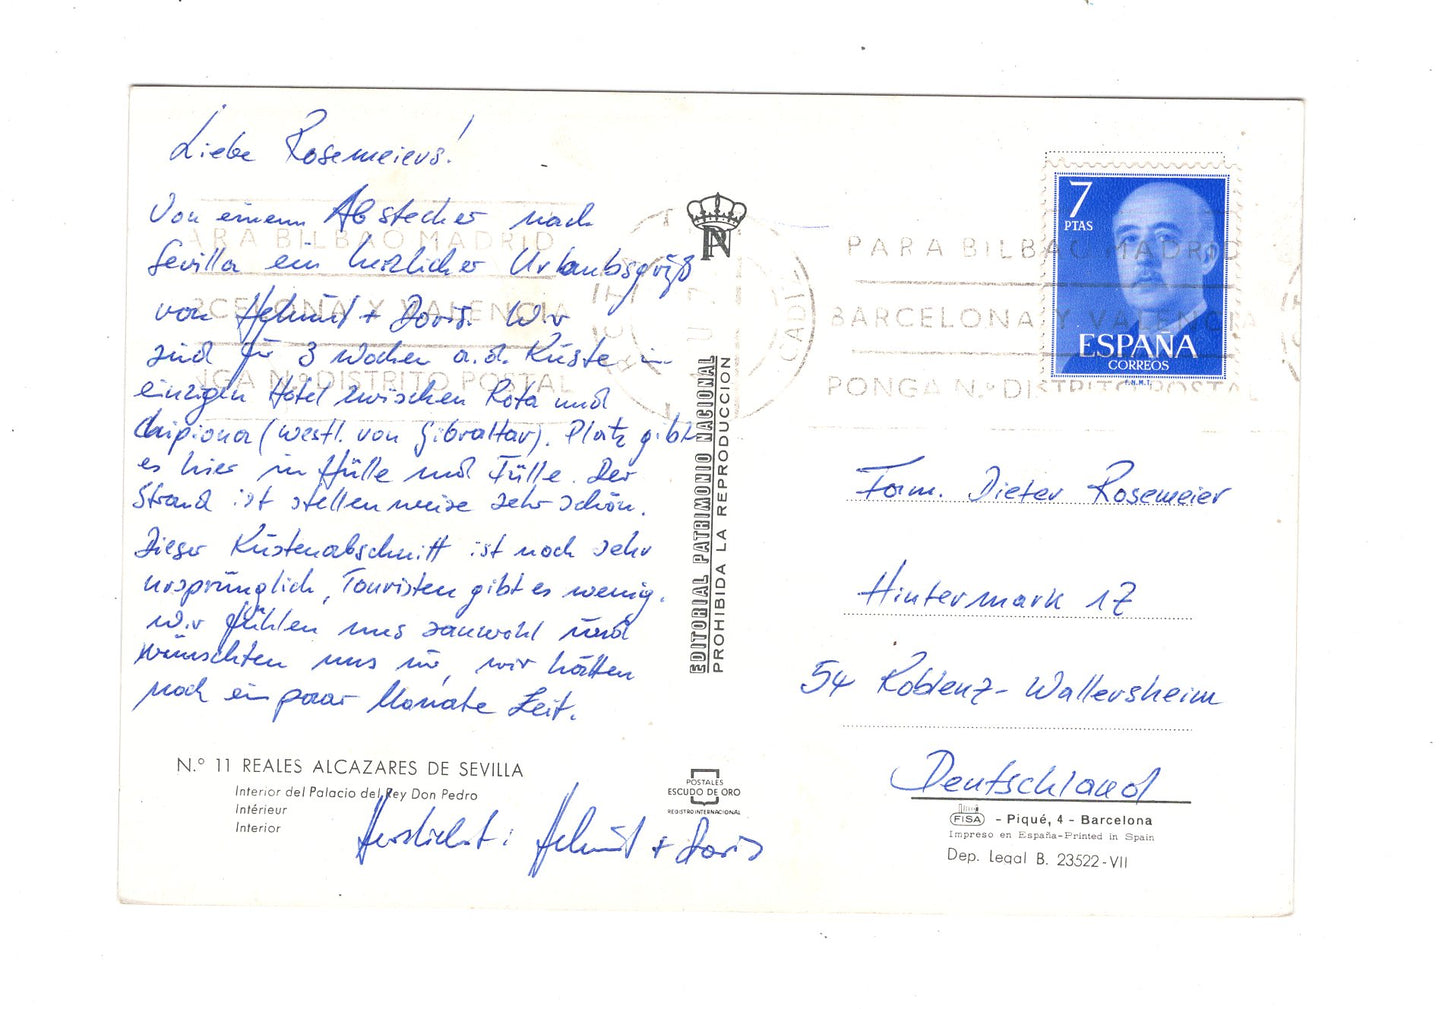 Liebe Rosemeiers!
Von einem Abstecher nach
Sevilla ein herzlicher Urlaubsgruß
von Helmut + Doris. Wir
sind für 3 Wochen a. d. Küste im
einzigen Hotel zwischen Rota und
Chipiona (westl. von Gibraltar). Platz gibt
es hier in Hülle und Fülle. Der
Strand ist stellenweise sehr schön.
Dieser Küstenabschnitt ist noch sehr
ursprünglich, Touristen gibt es wenig.
Wir fühlen uns sauwohl und
wünschten uns nur, wir hätten
noch ein paar Monate Zeit.
Herzlichst: Helmut + Doris
N.º 11 REALES ALCAZARES DE SEVILLA
Interior del Palacio del Rey Don Pedro
Intérieur
Interior
EDITORIAL PATRIMONIO NACIONAL
PROHIBIDA LA REPRODUCCION
POSTALES
ESCUDO DE ORO
REGISTRO INTERNACIONAL
ARA BILBAO MADRID
RCELONA Y VALENCIA
NGA N.º DISTRITO POSTAL
CADIZ
PARA BILBAO MADRID
BARCELONA Y VALENCIA
PONGA N.º DISTRITO POSTAL
7
PTAS
ESPAÑA
CORREOS
F.N.M.T.
Fam. Dieter Rosemeier
Hintermark 17
54 Koblenz-Wallersheim
Deutschland
FISA - Piqué, 4 - Barcelona
Impreso en España-Printed in Spain
Dep. Legal B. 23522-VII